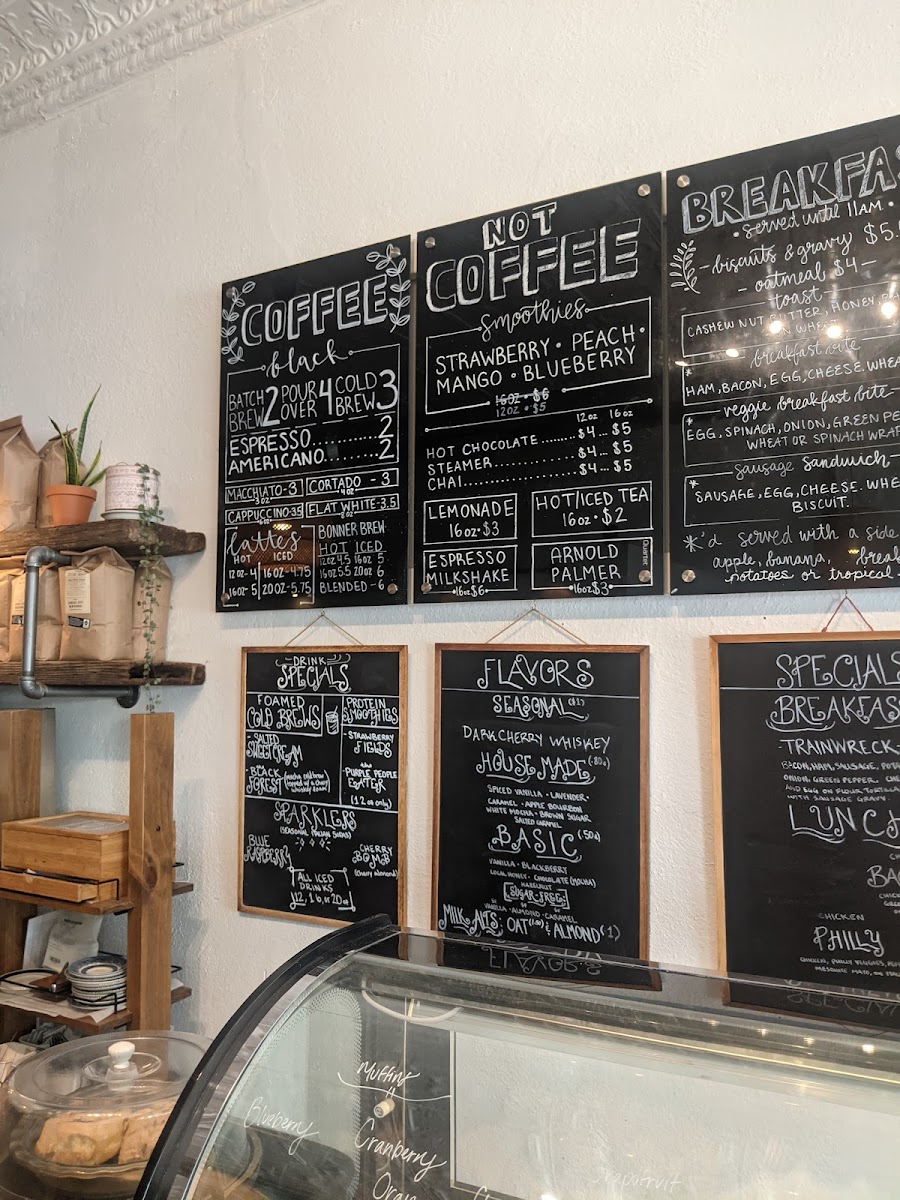 COFFEE
black
BATCH BREW 2 POUR OVER 4 COLD BREW 3
ESPRESSO............2
AMERICANO............2
MACCHIATO-3
3oz
CORTADO - 3
4oz
CAPPUCCINO-3.5
FLAT WHITE-3.5
8oz
lattes
HOT ICED
12oz-4 16oz-4.75
16oz-5 20oz-5.75
BONNER BREW
HOT ICED
12oz 4.5 16oz 5
16oz 5.5 20oz 6
BLENDED-6
NOT
COFFEE
smoothies
STRAWBERRY • PEACH •
MANGO • BLUEBERRY
16oz • $6
12oz • $5
12oz 16oz
HOT CHOCOLATE........$4...$5
STEAMER...............$4...$5
CHAI....................$4...$5
LEMONADE
16oz•$3
HOT/ICED TEA
16oz•$2
ESPRESSO
MILKSHAKE
•16oz$6•
ARNOLD
PALMER
•16oz$3•
BREAKFA
• served until 11AM •
- biscuits & gravy $5.
- oatmeal $4 -
toast
CASHEW NUT BUTTER, HONEY,
breakfast bite
* HAM, BACON, EGG, CHEESE. WHEA
veggie breakfast bite
* EGG, SPINACH, ONION, GREEN PE
WHEAT OR SPINACH WRAP
sausage sandwich
* SAUSAGE, EGG, CHEESE. WHE
BISCUIT.
*'d served with a side
apple, banana, break
potatoes or tropical
DRINK
SPECIALS
FOAMED
COLD BREWS
- SALTED
SWEET CREAM
- BLACK
FOREST (mocha cold brew
topped w/ a cherry
whiskey foam)
PROTEIN
SMOOTHIES
- STRAWBERRY
FIELDS
- the
PURPLE PEOPLE
EATER
(12oz only)
SPARKLERS
(SEASONAL ITALIAN SODAS)
BLUE
RASPBERRY
CHERRY
BOMB
(cherry almond)
ALL ICED
DRINKS
12, 16, or 20oz
FLAVORS
SEASONAL ($1)
DARK CHERRY WHISKEY
HOUSE MADE (.80¢)
SPICED VANILLA • LAVENDER •
CARAMEL • APPLE BOURBON
WHITE MOCHA • BROWN SUGAR
SALTED CARAMEL
BASIC (.50¢)
VANILLA • BLACKBERRY
LOCAL HONEY • CHOCOLATE (MOCHA)
HAZELNUT
SUGAR-FREE
VANILLA • ALMOND • CARAMEL
MILK ALTS: OAT & ALMOND ($1)
SPECIALS
BREAKFAS
- TRAINWRECK -
BACON, HAM, SAUSAGE, POTA
ONION, GREEN PEPPER, CHE
AND EGG ON FLOUR TORTILLA
WITH SAUSAGE GRAVY.
LUNCH
BAC
CHICKEN
PHILLY
CHICKEN, PHILLY VEGGIES, PEP
Muffins
Blueberry
Cranberry
Oran
Grapefruit